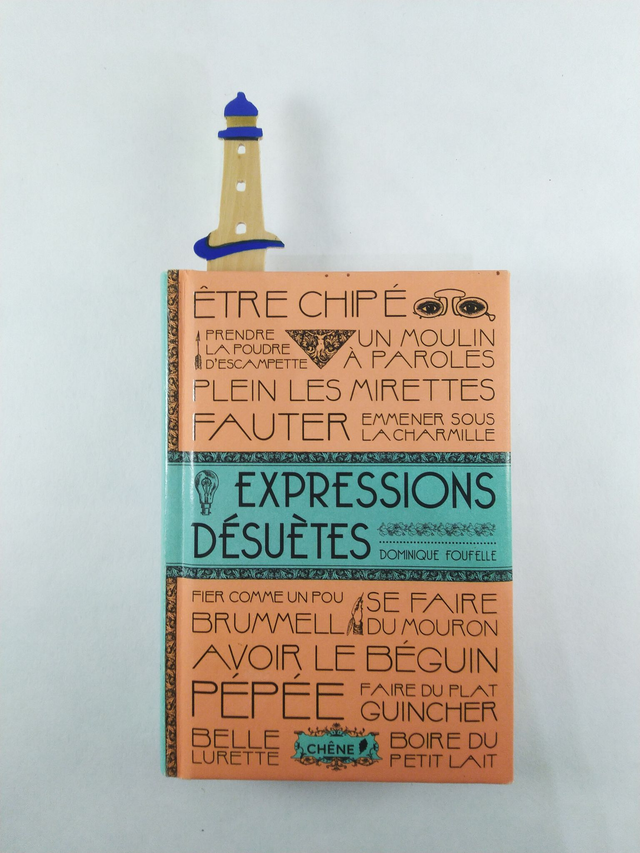 ÊTRE CHIPÉ
PRENDRE
LA POUDRE
D'ESCAMPETTE
UN MOULIN
À PAROLES
PLEIN LES MIRETTES
FAUTER
EMMENER SOUS
LA CHARMILLE
EXPRESSIONS
DÉSUÈTES
DOMINIQUE FOUFELLE
FIER COMME UN POU
BRUMMELL
SE FAIRE
DU MOURON
AVOIR LE BÉGUIN
PÉPÉE
FAIRE DU PLAT
GUINCHER
BELLE
LURETTE
CHÊNE
BOIRE DU
PETIT LAIT